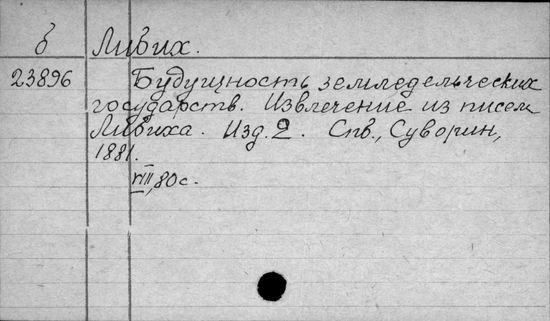 б Либих.
23896 Будущность земледельческих
государств. Извлечение из писем
Либиха. Изд. 2. Спб., Суворин,
1881.
VIII, 80 с.